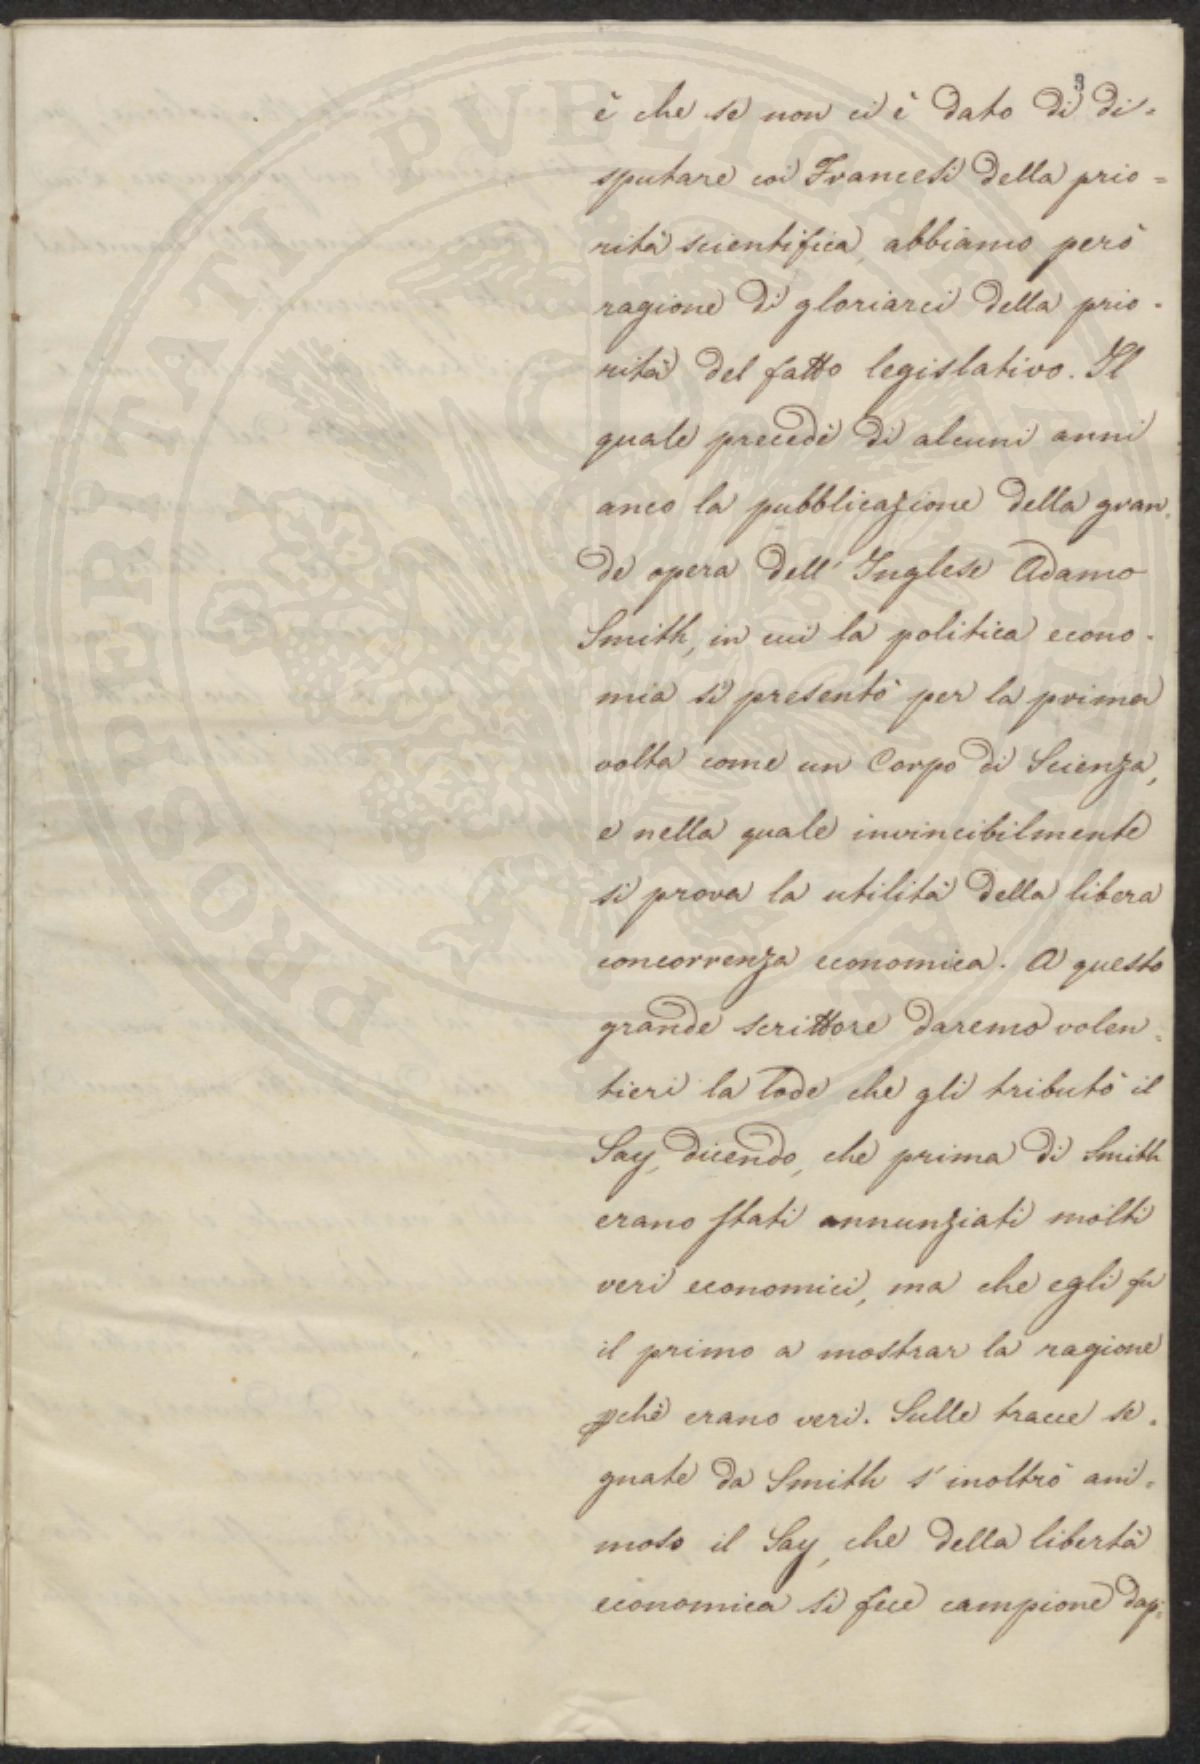 3
è che se non ci è dato di di=
sputare coi Francesi della prio=
rità scientifica, abbiamo però
ragione di gloriarci della prio-
rità del fatto legislativo. Il
quale precedè di alcuni anni
anco la pubblicazione della gran-
de opera dell'Inglese Adamo
Smith, in cui la politica econo-
mia si presentò per la prima
volta come un Corpo di Scienza,
e nella quale invincibilmente
si prova la utilità della libera
concorrenza economica. A questo
grande scrittore daremo volen-
tieri la lode che gli tributò il
Say, dicendo, che prima di Smith
erano stati annunziati molti
veri economici, ma che egli fu
il primo a mostrar la ragione
pchè erano veri. Sulle tracce se-
gnate da Smith s'inoltrò ani-
moso il Say, che della libertà
economica si fece campione dap-
PROSPERITATI PVBLICAE AVGENDAE